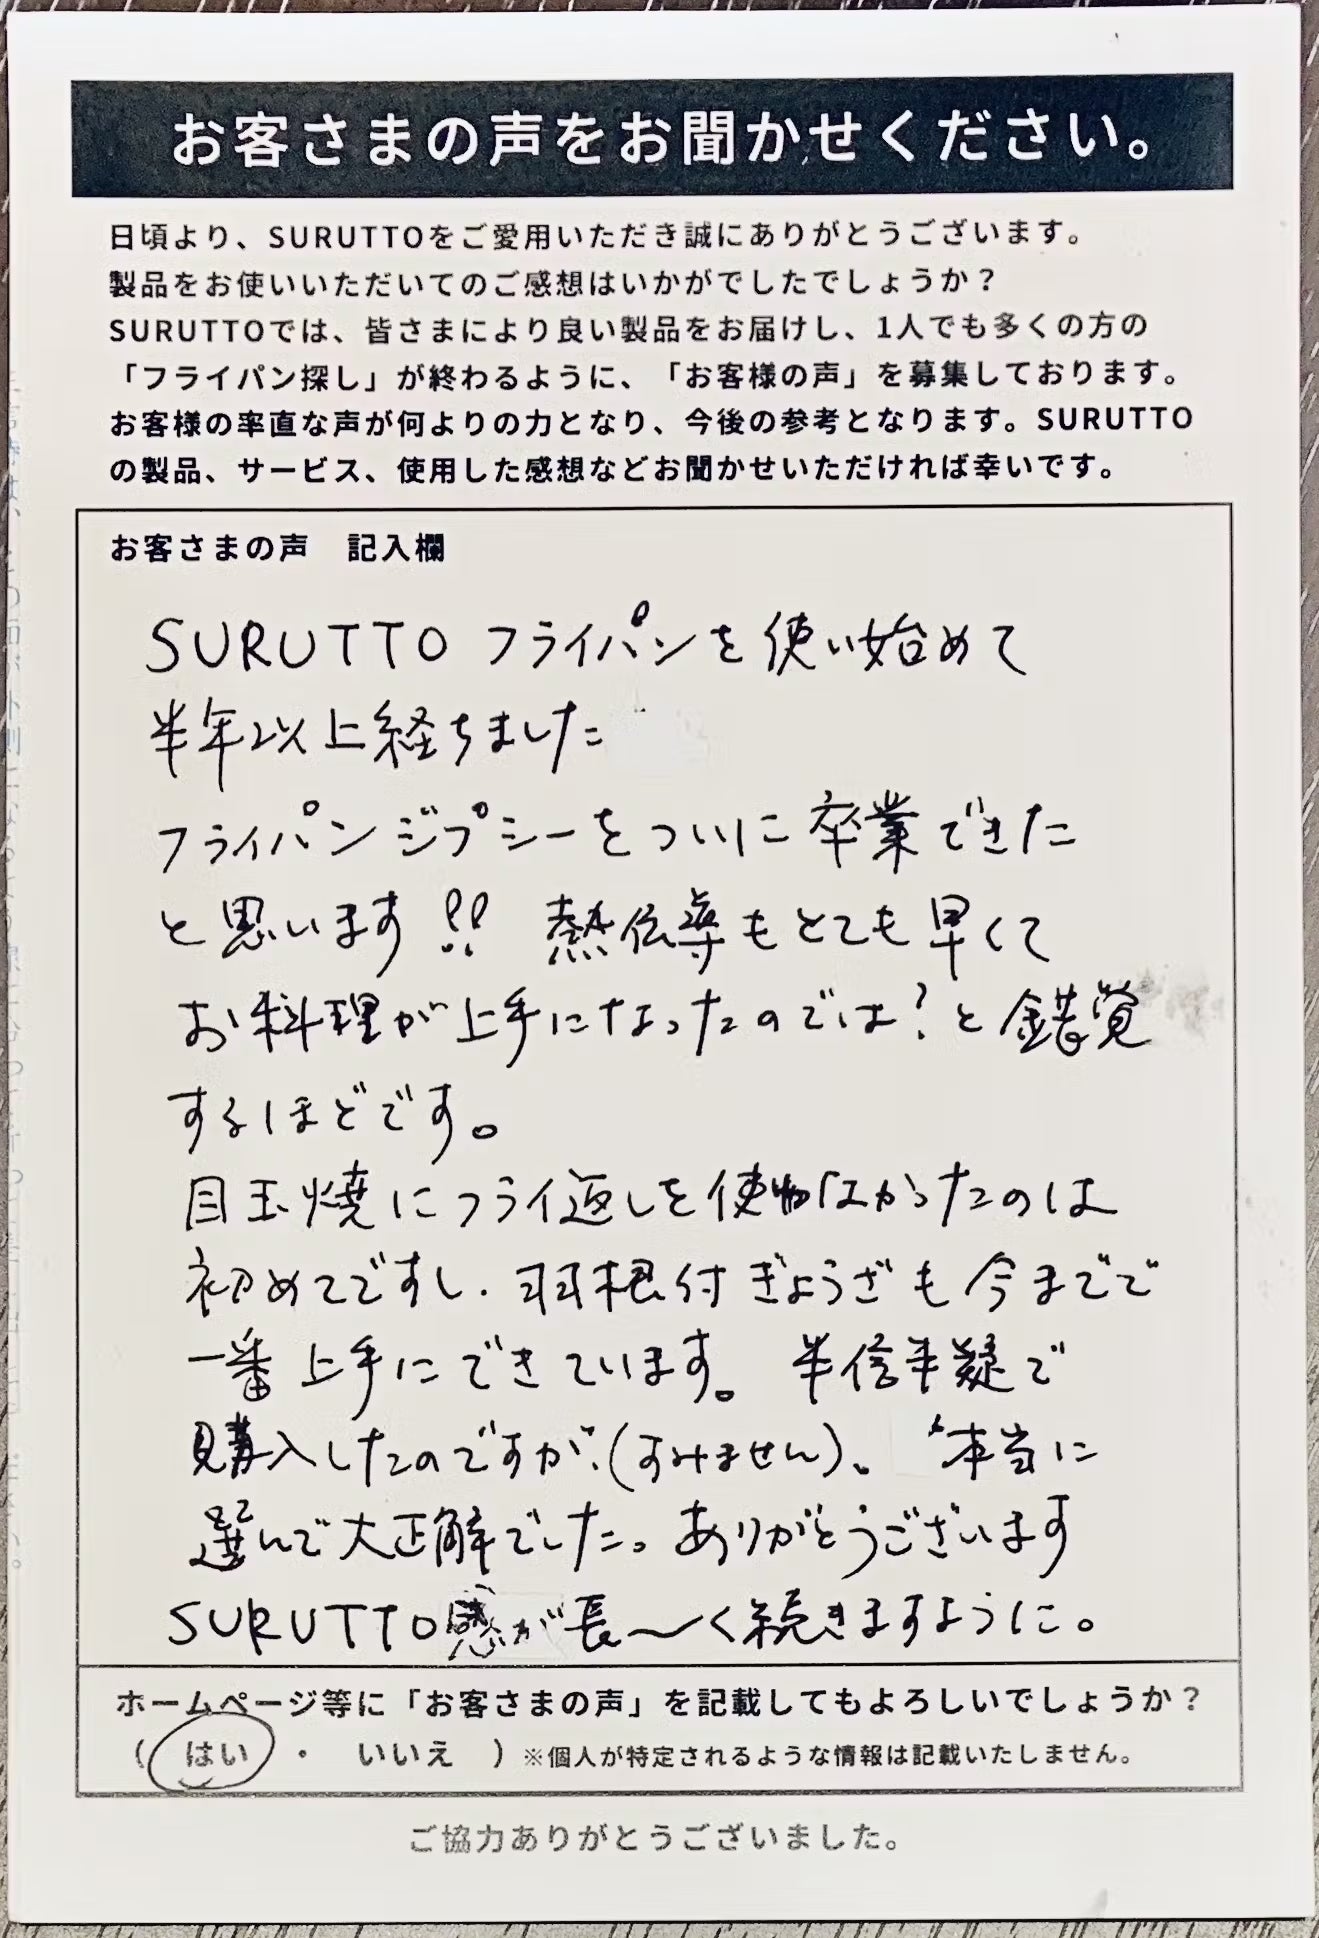 お客さまの声をお聞かせください。
日頃より、SURUTTOをご愛用いただき誠にありがとうございます。
製品をお使いいただいてのご感想はいかがでしたでしょうか？
SURUTTOでは、皆さまにより良い製品をお届けし、1人でも多くの方の
「フライパン探し」が終わるように、「お客様の声」を募集しております。
お客様の率直な声が何よりの力となり、今後の参考となります。SURUTTO
の製品、サービス、使用した感想などお聞かせいただければ幸いです。
お客さまの声　記入欄
SURUTTOフライパンを使い始めて
半年以上経ちました
フライパンジプシーをついに卒業できた
と思います!! 熱伝導もとても早くて
お料理が上手になったのでは?と錯覚
するほどです。
目玉焼にフライ返しを使わなかったのは
初めてですし、羽根付ぎょうざも今までで
一番上手にできています。半信半疑で
購入したのですが、(すみません)、本当に
選んで大正解でした。ありがとうございます
SURUTTO感が長〜く続きますように。
ホームページ等に「お客さまの声」を記載してもよろしいでしょうか？
（　はい　・　いいえ　）※個人が特定されるような情報は記載いたしません。
ご協力ありがとうございました。